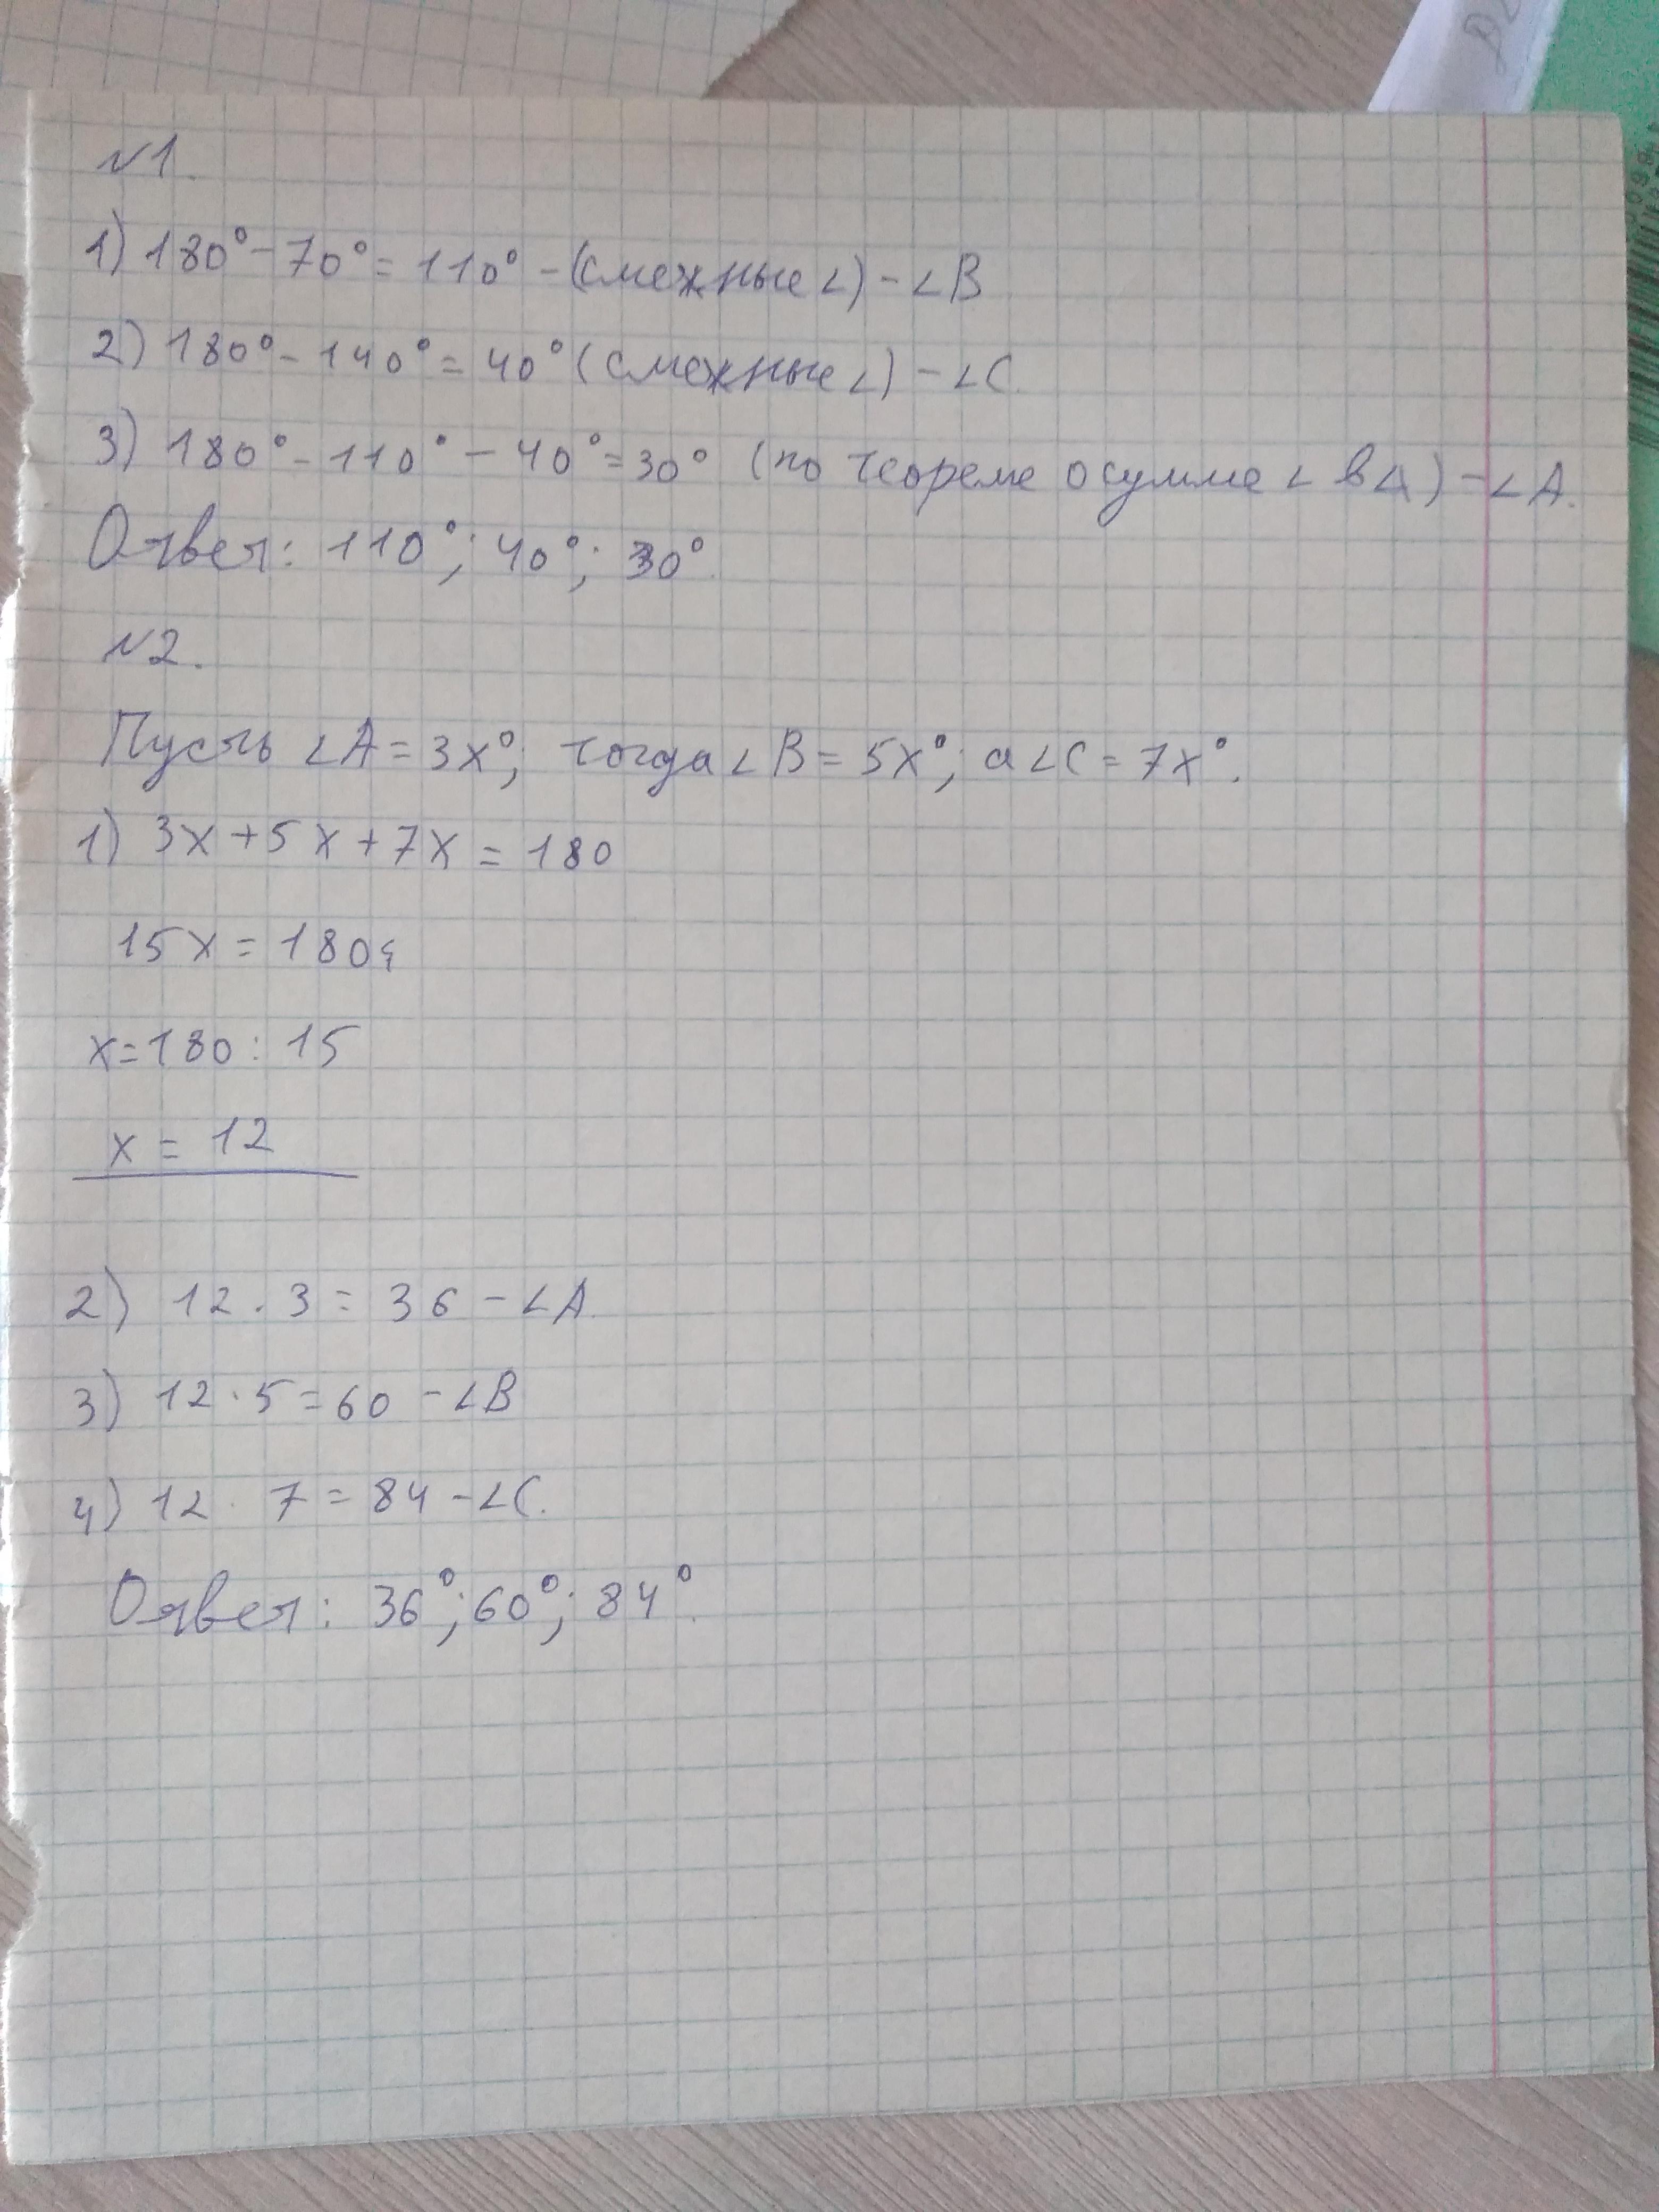 №1.
1) 180° - 70° = 110° - (смежные ∠) - ∠B
2) 180° - 140° = 40° (смежные ∠) - ∠C.
3) 180° - 110° - 40° = 30° (по теореме о сумме ∠ в Δ) - ∠A.
Ответ: 110°; 40°; 30°.
№2.
Пусть ∠A = 3x°; тогда ∠B = 5x°; а ∠C = 7x°.
1) 3x + 5x + 7x = 180
15x = 180
x = 180 : 15
x = 12
2) 12 · 3 = 36 - ∠A.
3) 12 · 5 = 60 - ∠B
4) 12 · 7 = 84 - ∠C.
Ответ: 36°; 60°; 84°.